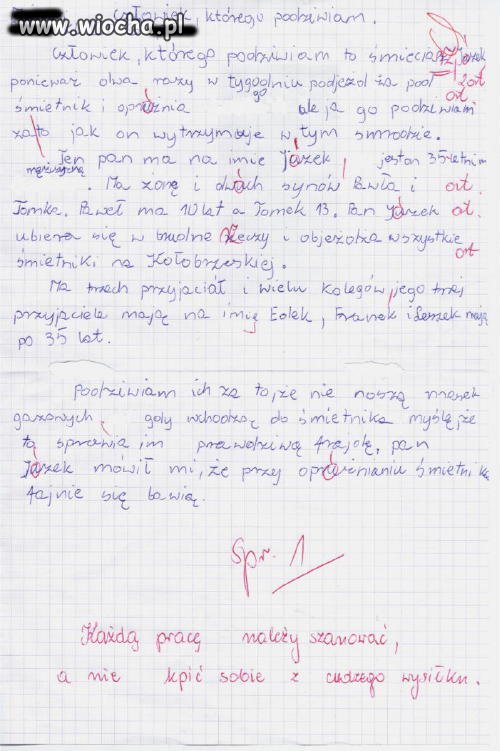 www.wiocha.pl
Człowiek, którego podziwiam.
Człowiek, którego podziwiam to śmieciarz Jazek
ponieważ dwa razy w tygodniu podjeżdża pod 2ort
go ort
śmietnik i oprużnia ale ja go podziwiam
za to jak on wytrzymuje w tym smrodzie.
Ten pan ma na imie Jazek jest on 35letnim
mężczyzną. Ma żonę i dwuch synów Pawła i ort.
Tomka. Paweł ma 10 lat a Tomek 13. Pan Jazek ort.
ubiera się w brudne rzeczy i objeżdża wszystkie
ort
śmietniki na Kołobrzeskiej.
Ma trzech przyjaciół i wielu kolegów, jego trzej
przyjaciele mają na imię Lolek, Franek i Leszek mają
po 35 lat.
Podziwiam ich za to, że nie noszą masek
gazowych, gdy wchodzą do śmietnika myślę, że
to sprawia im prawdziwą frajdę, pan
Jazek mówił mi, że przy oprużnianiu śmietnika
fajnie się bawią.
Spr. 1
Każdą pracę należy szanować,
a nie kpić sobie z cudzego wysiłku.